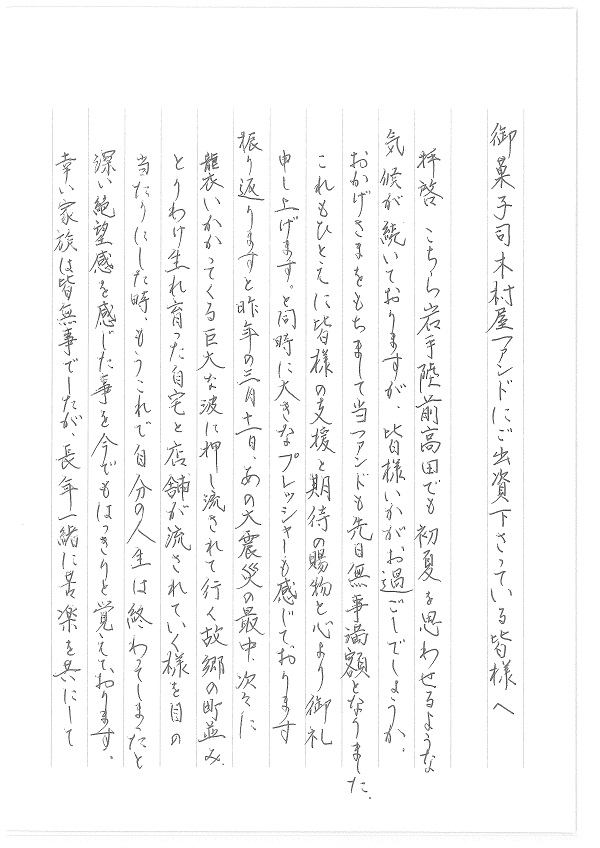 御菓子司木村屋ファンドにご出資下さっている皆様へ
拝啓 こちら岩手陸前高田でも初夏を思わせるような
気候が続いておりますが、皆様いかがお過ごしでしょうか。
おかげさまをもちまして当ファンドも先日無事満額となりました。
これもひとえに皆様の支援と期待の賜物と心より御礼
申し上げます。と同時に大きなプレッシャーも感じております
振り返りますと昨年の三月十一日、あの大震災の最中、次々に
襲いかかってくる巨大な波に押し流されて行く故郷の町並み、
とりわけ生れ育った自宅と店舗が流されていく様を目の
当たりにした時、もうこれで自分の人生は終わってしまったと
深い絶望感を感じた事を今でもはっきりと覚えております。
幸い家族は皆無事でしたが、長年一緒に苦楽を共にして